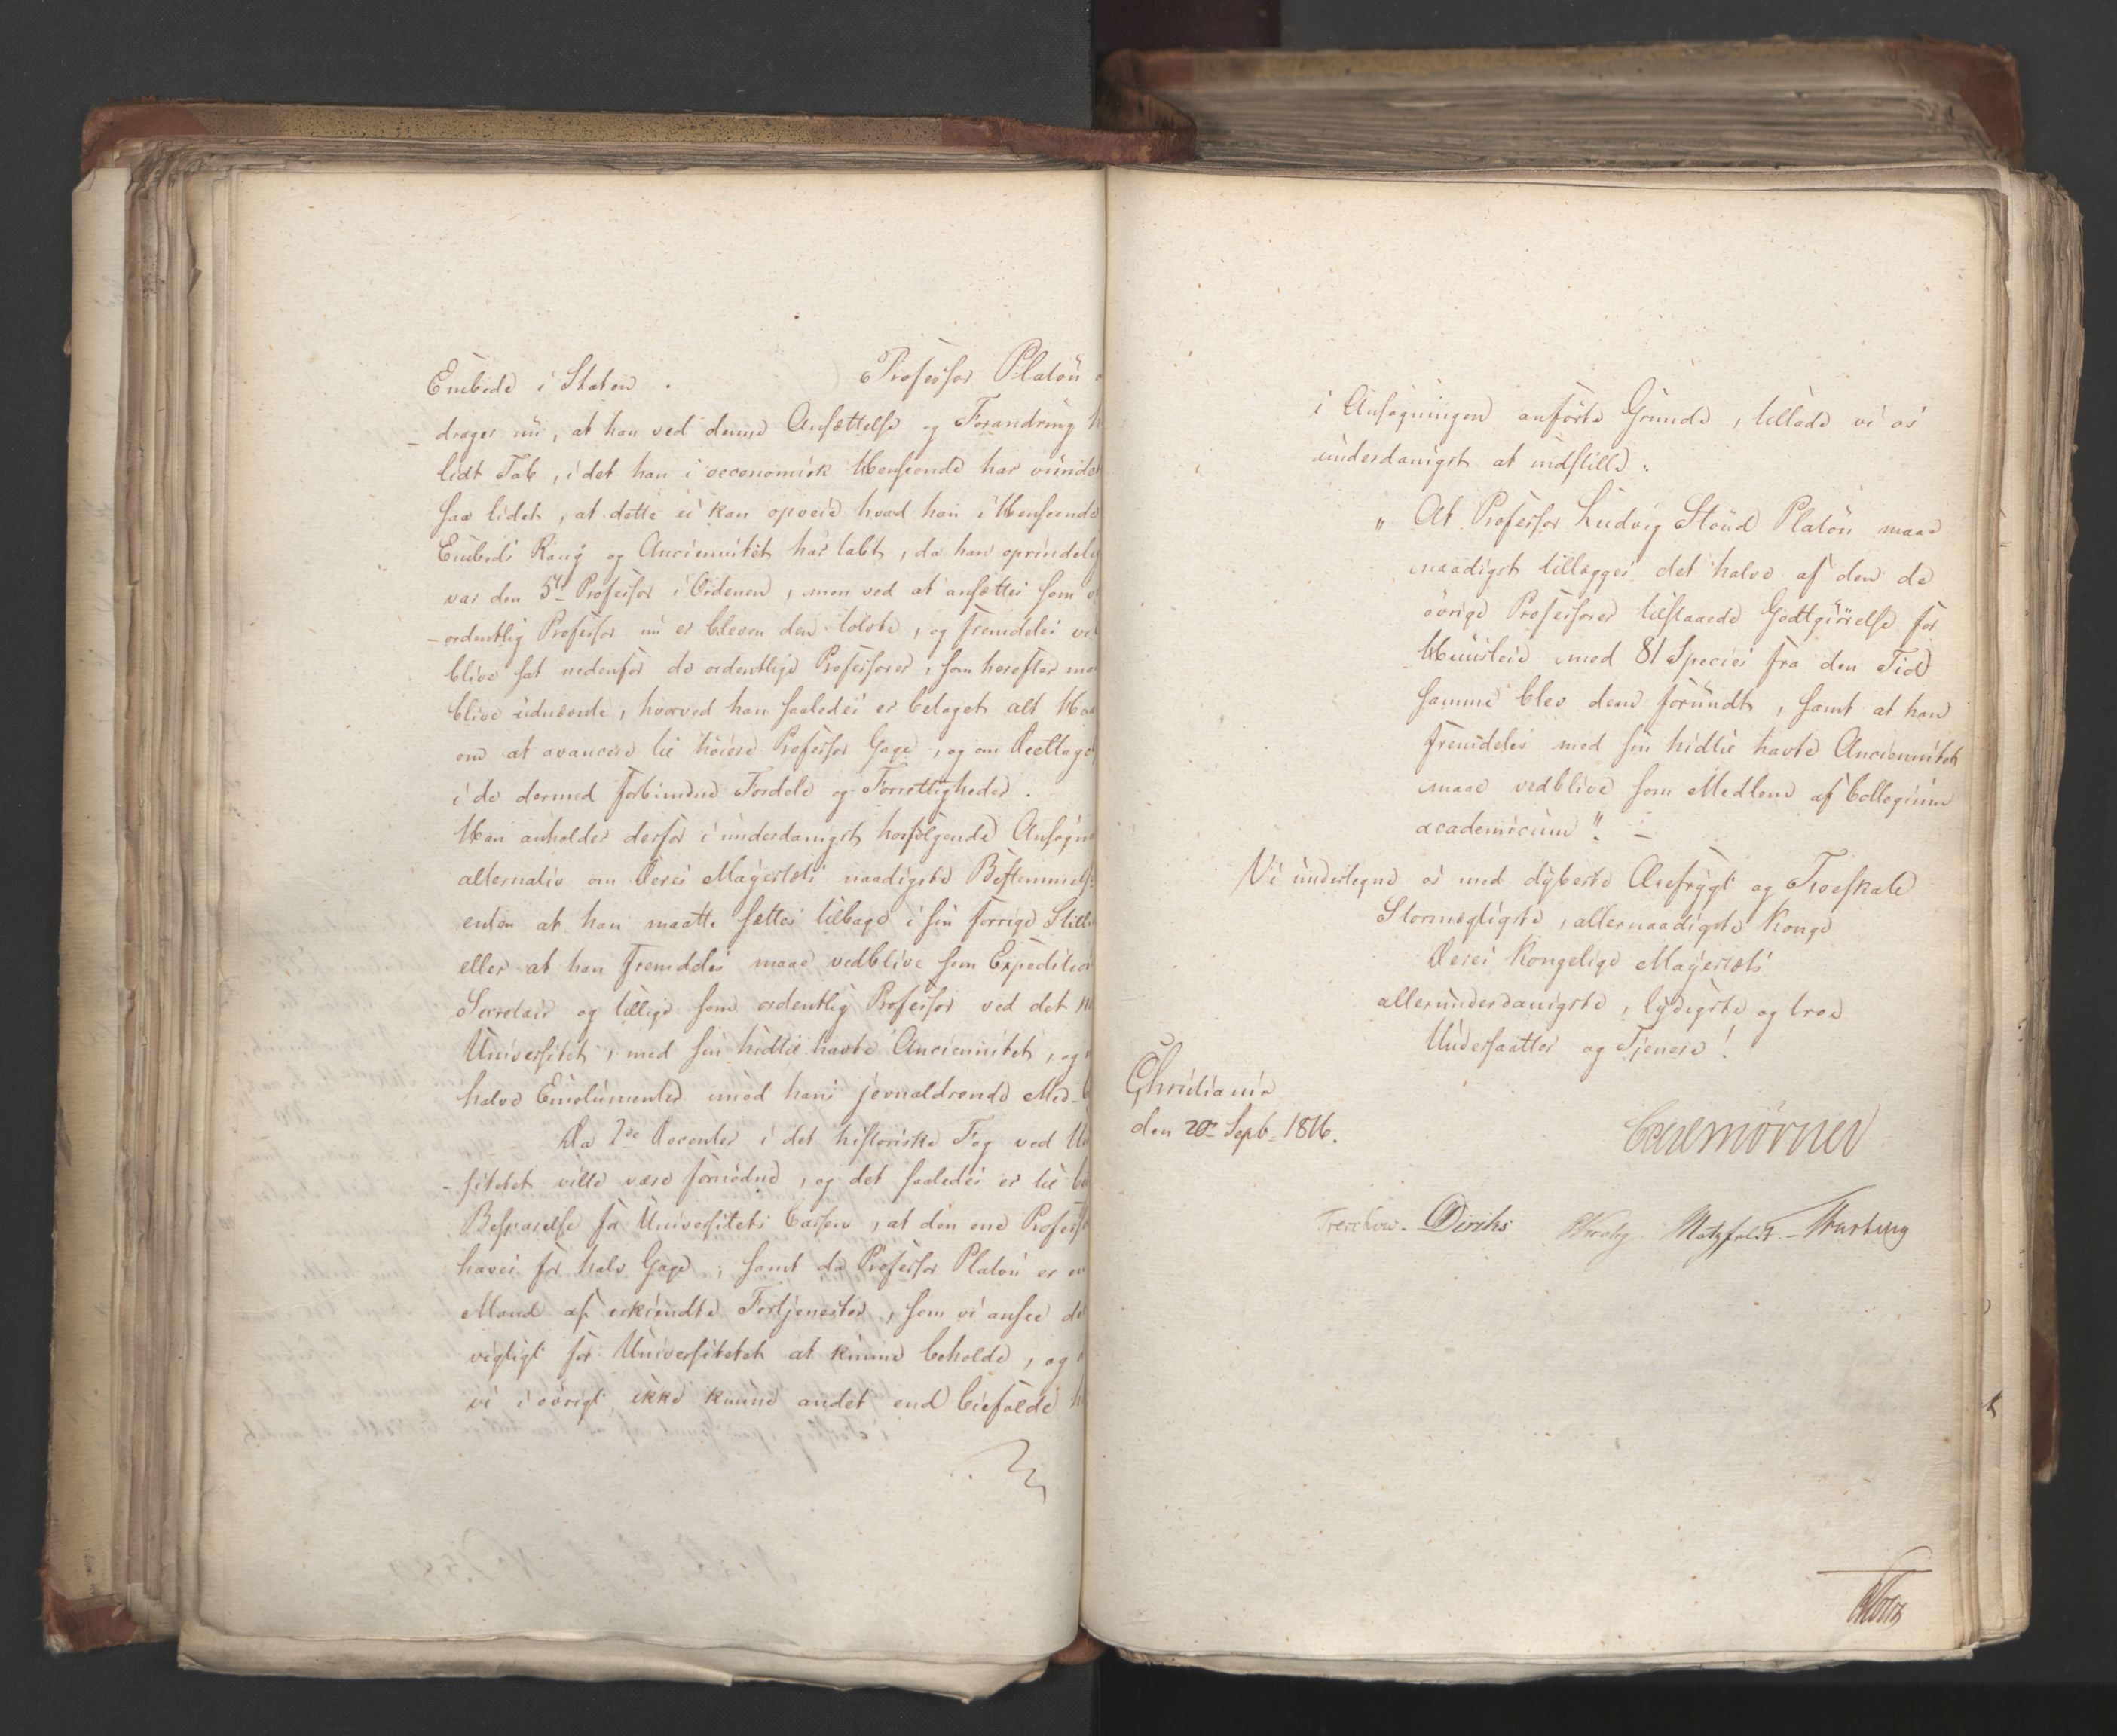 Embede i Staten. Professor Platou
drager nu, at han ved denne Ansættelse og Forandring
lidt Tab, i det han i oeconomisk Henseende har vundet
saa lidet, at dette ei kan opveie hvad han i Henseende
Embeds Rang og Anciennitet har tabt, da han oprindelig
var den 5te Professor i Ordenen, men ved at ansættes som
-ordentlig Professor nu er bleven den tolvte, og fremdeles vil
blive sat nedenfor de ordentlige Professorer, som herefter
blive udnævnte, hvorved han saaledes er betaget alt
om at avancere til höiere Professor Gage, og om Deeltage
i de dermed forbundne Fordele og Forrettigheder.
Han anholder derfor i underdanigst hosfölgende
alternativ om Deres Majestæts naadigste Bestemmelse
enten at han maatte sættes tilbage i sin forrige
eller at han fremdeles maae vedblive som Expeditions
Secretair og tillige som ordentlig Professor ved det
Universitet, med sin hidtil havte Anciennitet, og
halve Emolumenter med hans jevnaldrende Med-
Da 2de Docenter i det historiske Fag ved
-sitetet ville være fornödne, og det saaledes er til
Besparelse for Universitets Cassen, at den ene Professor
haves for halv Gage; samt da Professor Platou er
Mand af erkjendte Fortjenester, som vi ansee
vigtigt for Universitetet at kunne beholde, og
vi i övrigt ikke kunne andet end biefalde
i Ansøgningen anförte Grunde, tillade vi os
underdanigst at indstille:
"At Professor Ludvig Stoud Platou maae
naadigst tillægges det halve af den de
övrige Professorer tilstaaede Godtgiörelse for
Huusleie med 81 Species fra den Tid
samme blev dem forundt, samt at han
fremdeles med sin hidtil havte Anciennitet
maae vedblive som Medlem af Collegium
academicum". -
Vi undertegne os med dybeste Ærefrygt og Troeskab
Stormægtigste, allernaadigste Konge
Deres Kongelige Majestæts
allerunderdanigste, lydigste og troe
Undersaatter og Tjenere!
Christiania
den 20de Septb. 1816.
Mörner
Treschow. Diriks Krohg Motzfeldt. - Thurberg